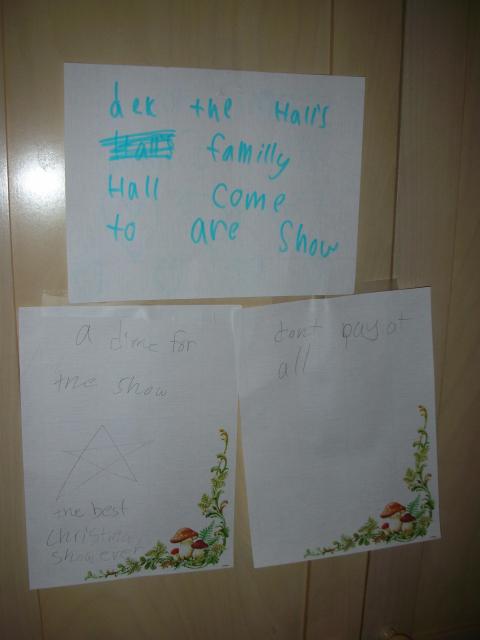 dek the Hall's
Hall's familly
Hall come
to are Show
a dime for
the show
the best
christmas
show ever
dont pay at
all